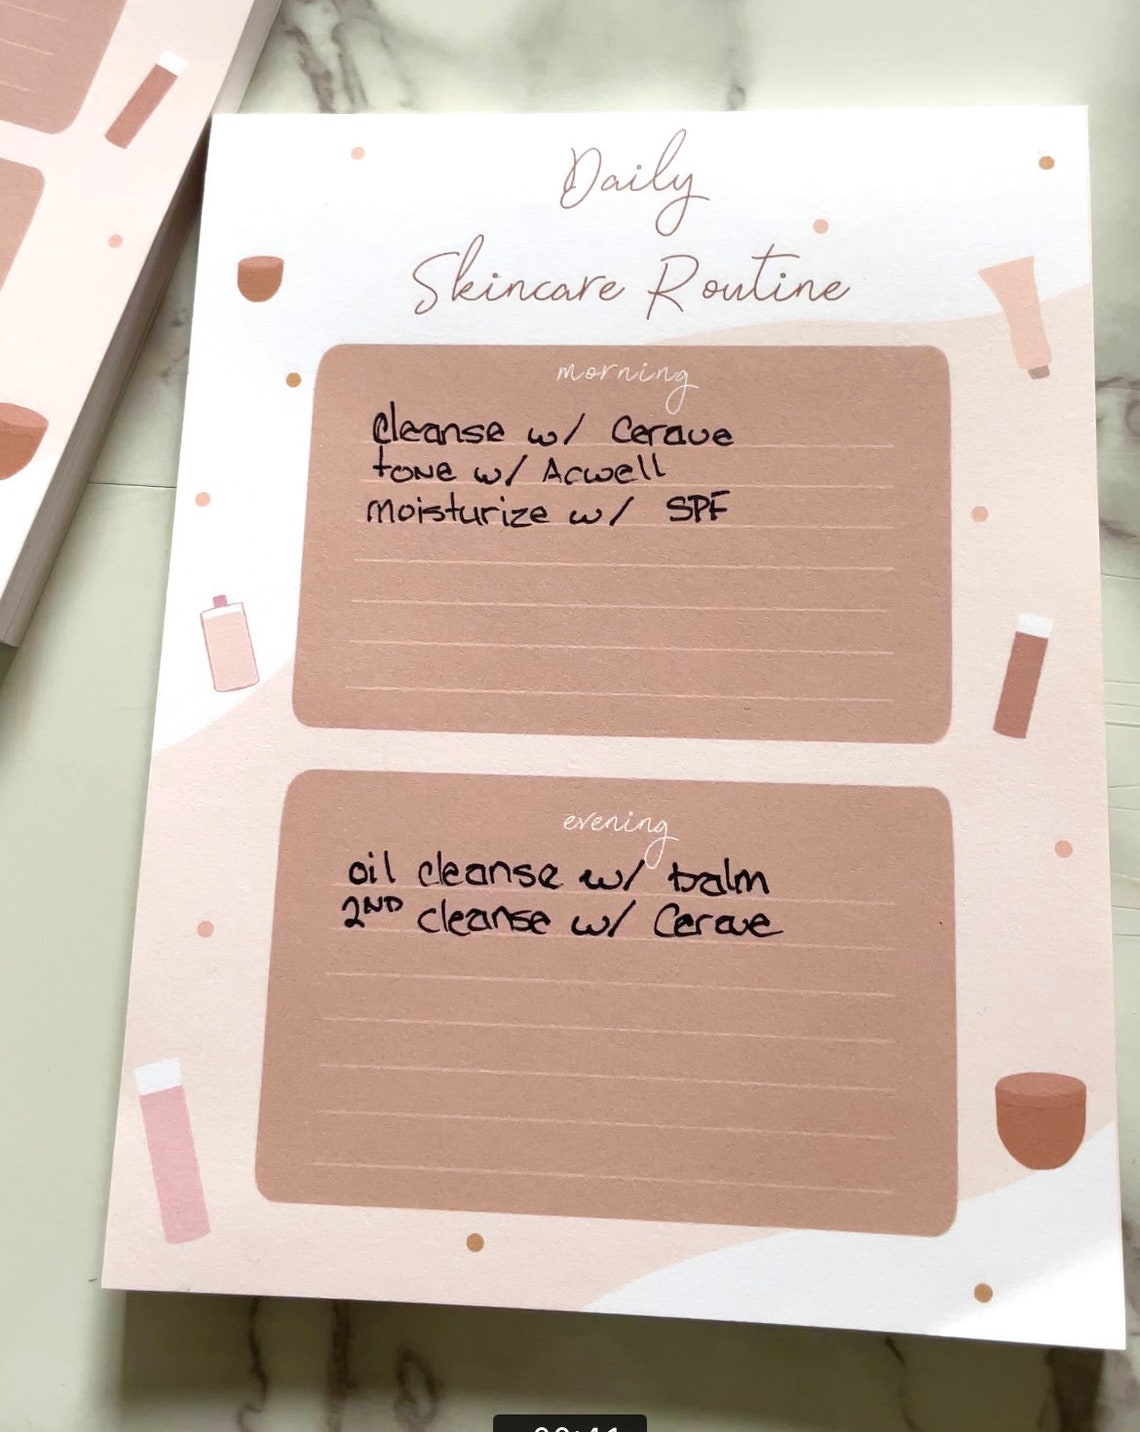 Daily
Skincare Routine
morning
Cleanse w/ Cerave
tone w/ Acwell
moisturize w/ SPF
evening
oil cleanse w/ balm
2ND cleanse w/ Cerave